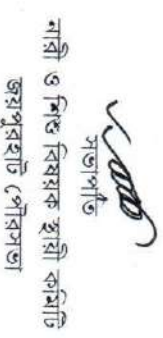 সভাপতি
নারী ও শিশু বিষয়ক স্থায়ী কমিটি
জয়পুরহাট পৌরসভা